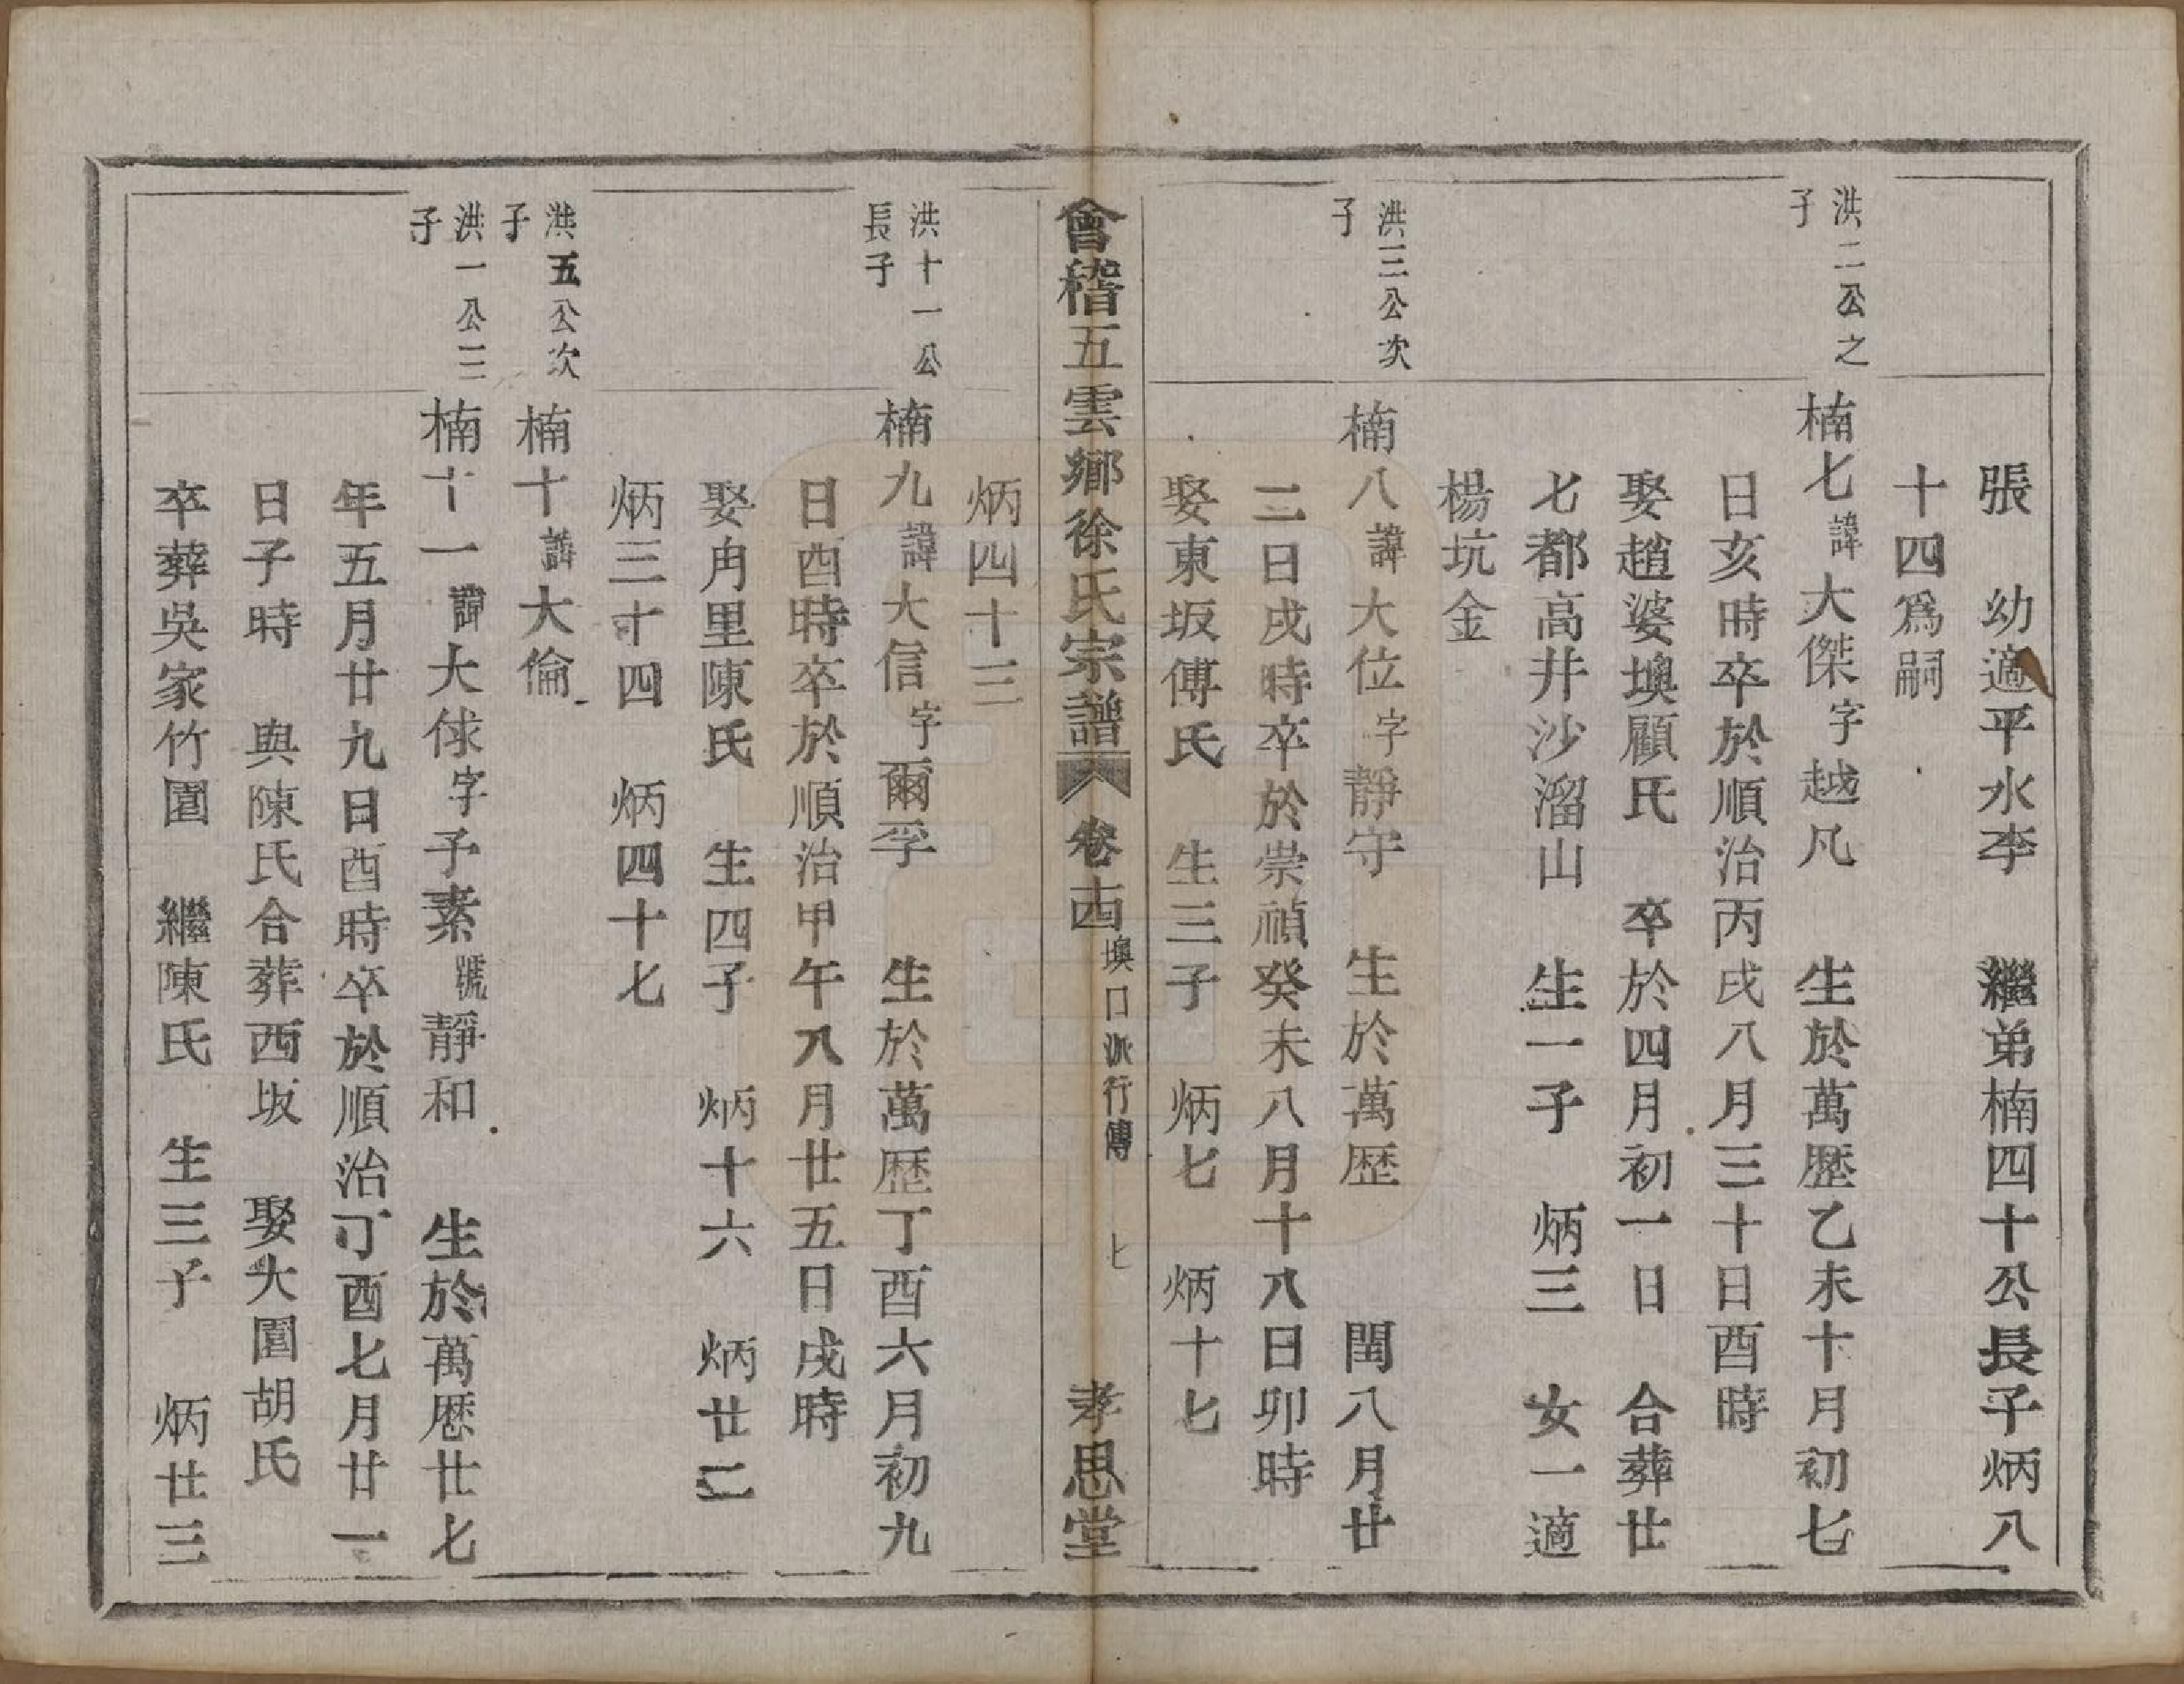 張　幼適平水李　繼弟楠四十公長子炳八
十四爲嗣
洪二公之
子
楠七諱大傑字越凡　生於萬歷乙未十月初七
日亥時卒於順治丙戌八月三十日酉時
娶趙婆墺顧氏　卒於四月初一日　合葬廿
七都高井沙溜山　生一子　炳三　女一適
楊坑金
洪三公次
子
楠八諱大位字靜守　生於萬歷　閏八月廿
二日戌時卒於崇禎癸未八月十八日卯時
娶東坂傅氏　生三子　炳七　炳十七
會稽五雲鄉徐氏宗譜　卷十四　墺口派行傳　七　孝思堂
炳四十三
洪十一公
長子
楠九諱大信字爾孚　生於萬歷丁酉六月初九
日酉時卒於順治甲午八月廿五日戌時
娶冉里陳氏　生四子　炳十六　炳廿二
炳三十四　炳四十七
洪五公次
子
楠十諱大倫
洪一公三
子
楠十一諱大俅字予素號靜和　生於萬歷廿七
年五月廿九日酉時卒於順治丁酉七月廿一
日子時　與陳氏合葬西坂　娶大園胡氏
卒葬吳家竹園　繼陳氏　生三子　炳廿三